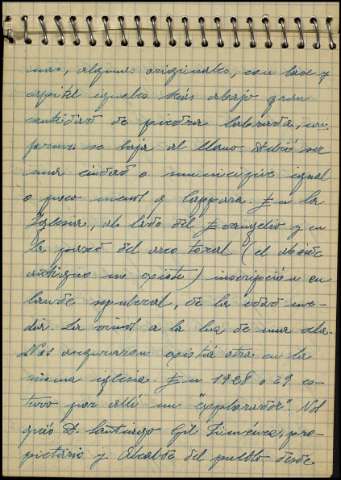 nas, algunas originales, con base y
capitel iguales. Más abajo gran
cantidad de piedra labrada,
se baja al llano. Debió ser
una ciudad o municipio igual
o poco menos q Cappara. En la
Iglesia, al lado del Evangelio y en
la pared del arco toral (el ábside
antiguo no existe) inscripción en
laude sepulcral, de la edad me-
dia. La vimos a la luz de una vela.
Nos aseguraron existía otra en la
misma iglesia. En 1928 o 29 es-
tuvo por allí un "explorador". Nos
guió D. Santiago Gil Jiménez, pro-
pietario y Alcalde del pueblo desde